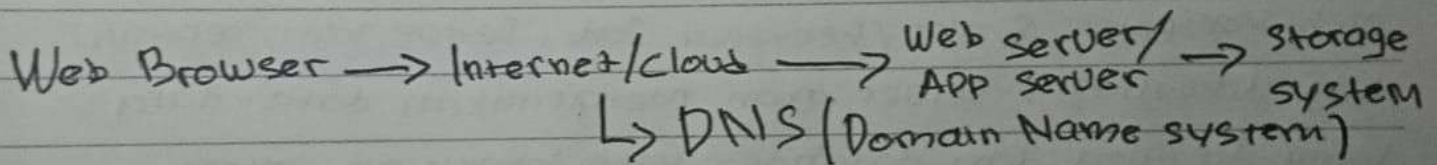 Web Browser → Internet/cloud → Web Server/ App server → storage system
↳ DNS (Domain Name system)